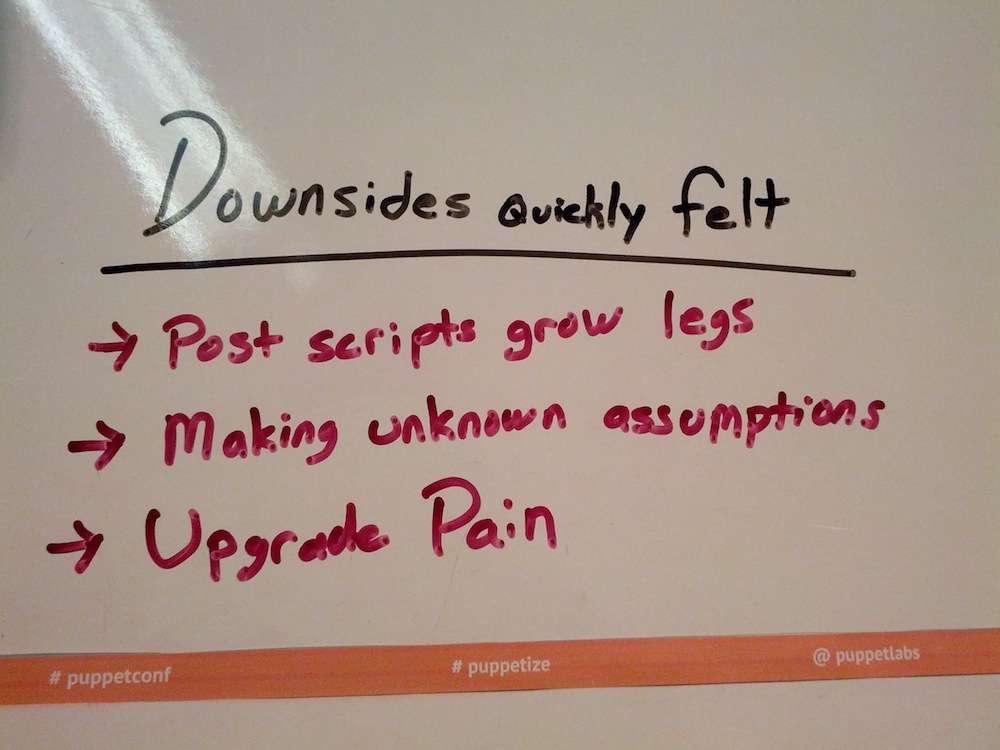 Downsides Quickly felt
→ Post scripts grow legs
→ Making unknown assumptions
→ Upgrade Pain
# puppetconf # puppetize @ puppetlabs